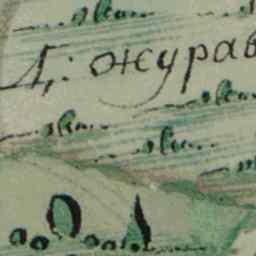 Д: журав